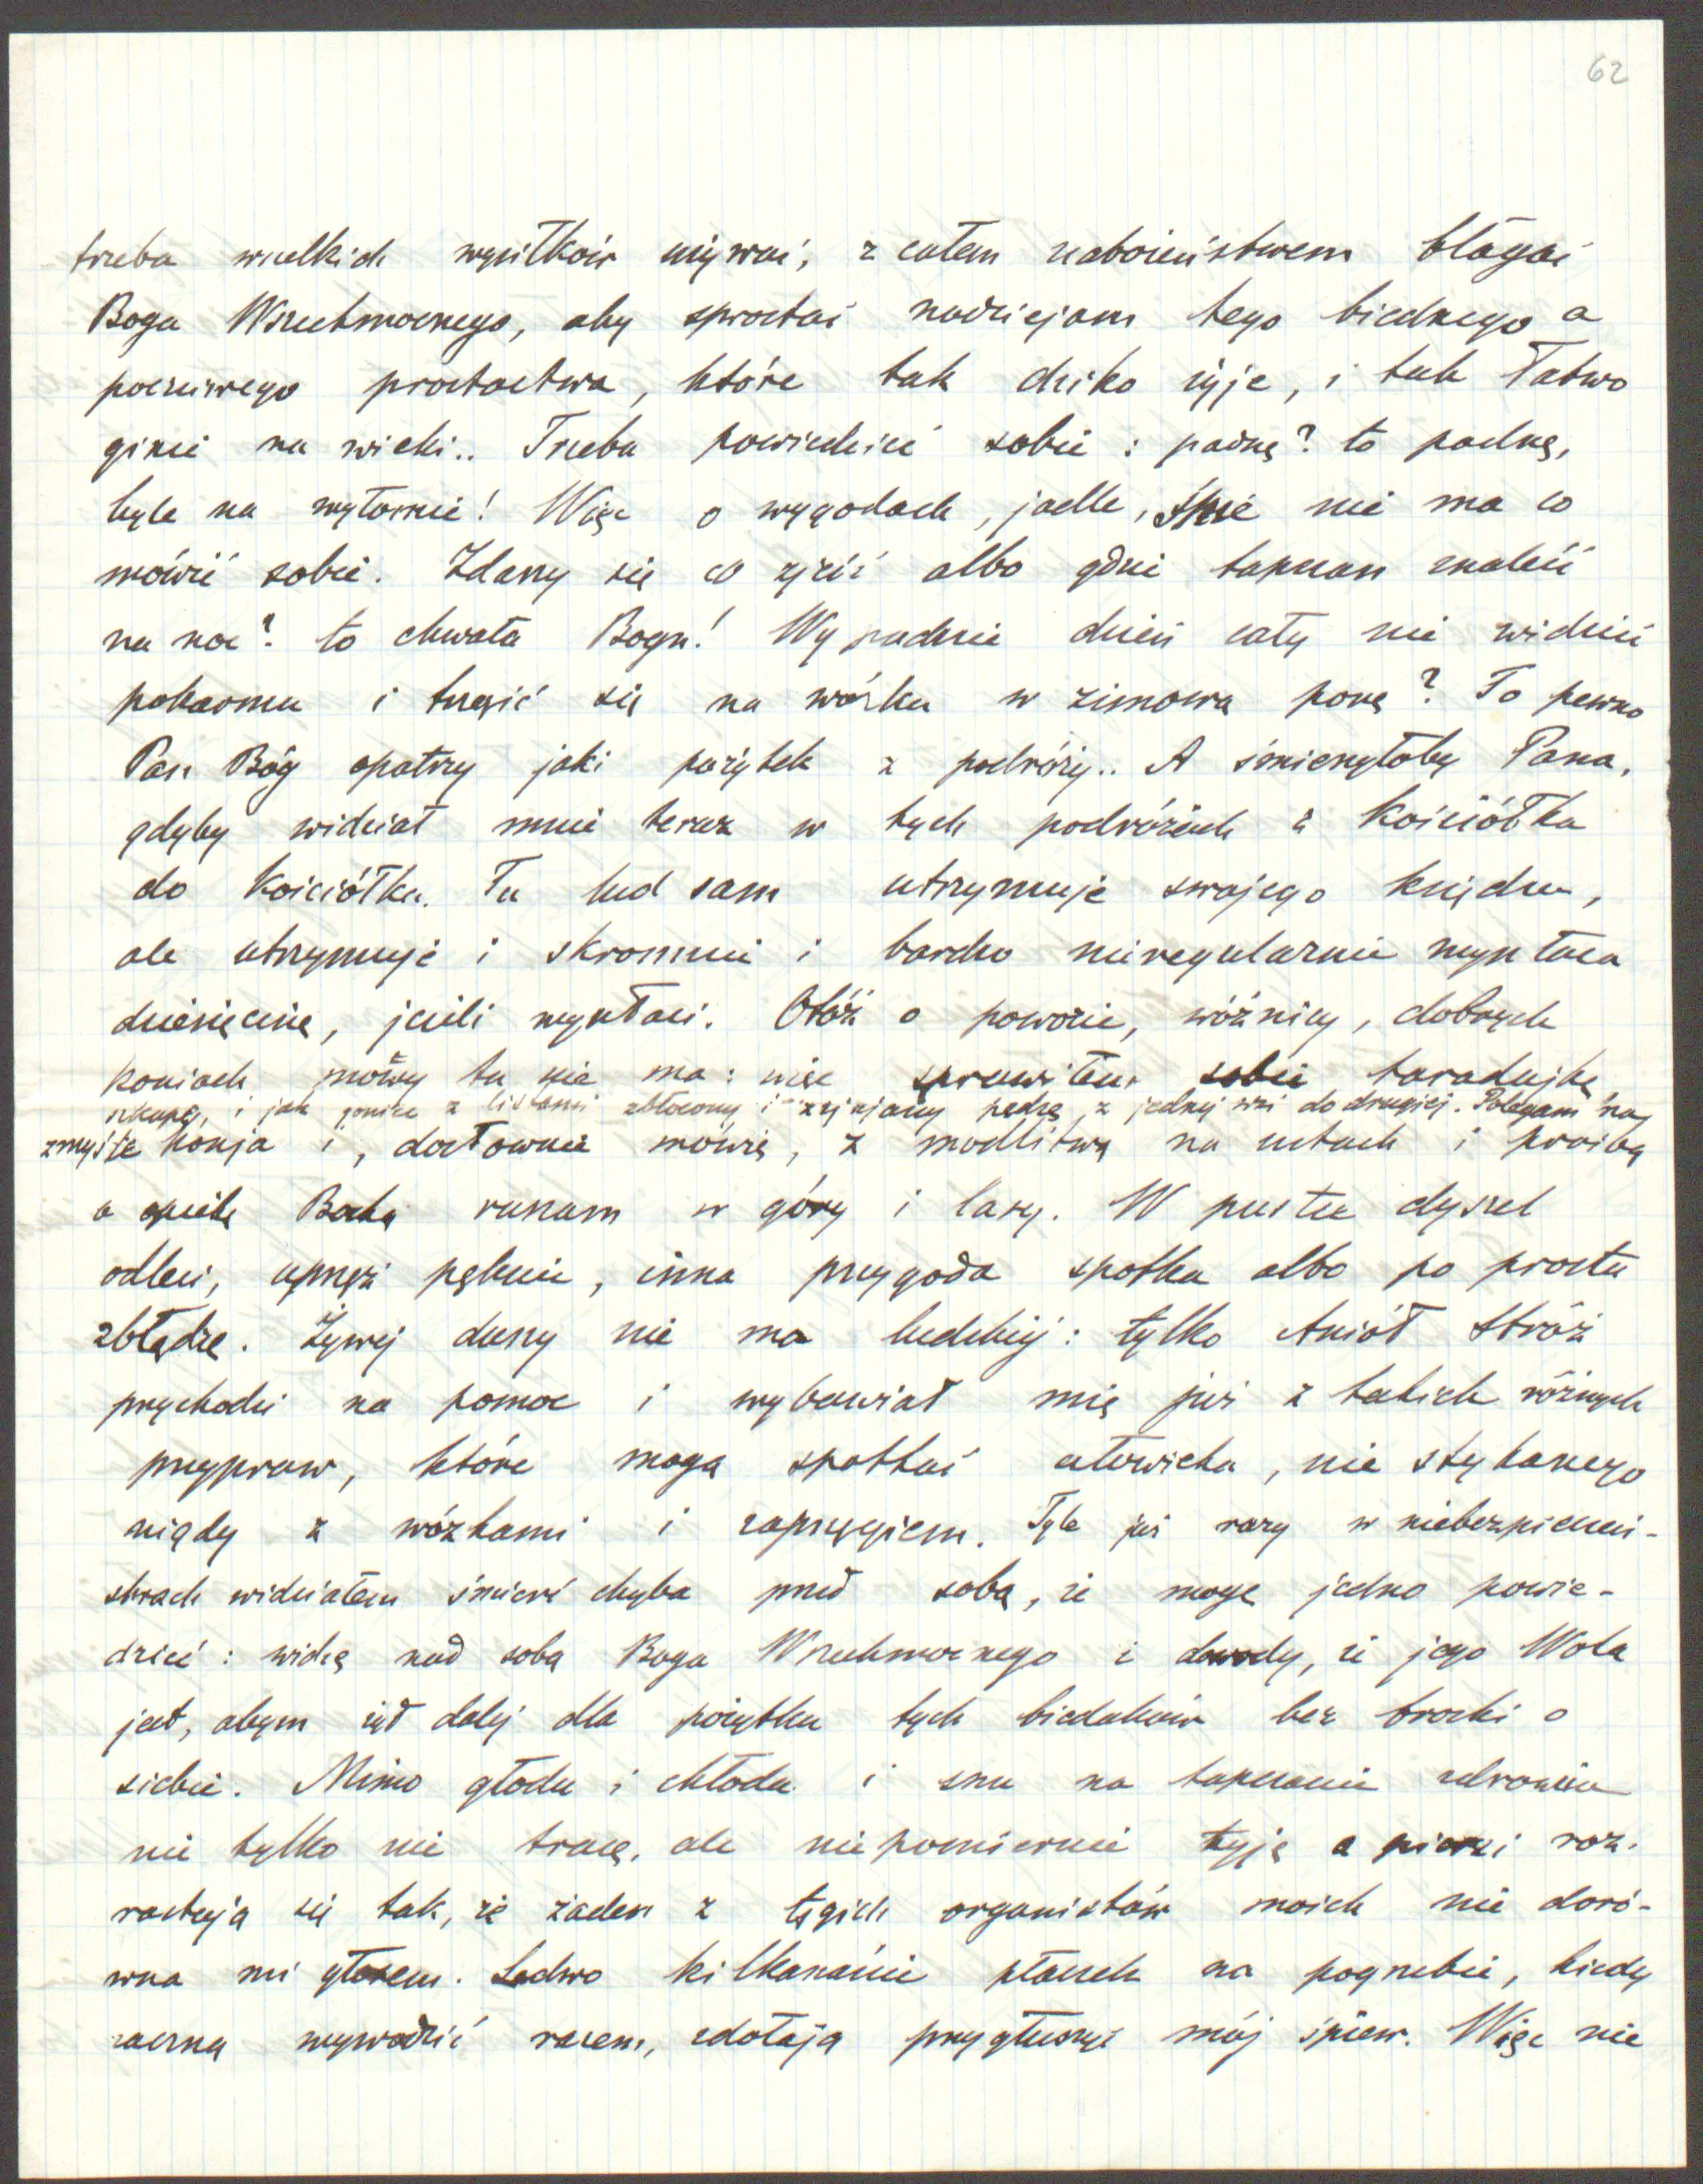 62
trzeba wielkich wysiłków używać, z całem nabożeństwem błagać
Boga Wszechmocnego, aby sprostać nadziejom tego biednego a
poczciwego prostactwa, które tak dziko żyje, i tak łatwo
ginie na wieki.. Trzeba powiedzieć sobie: padnę? to padnę,
byle na wyłomie! Więc o wygodach, jadle, śnie nie ma co
mówić sobie. Zdarzy się co zjeść albo gdzie tapczan znaleźć
na noc? to chwała Bogu! Wypadnie dzień cały nie widzieć
pokarmu i trząść się na wózku w zimową porę? To pewno
Pan Bóg opatrzy jaki pożytek z podróży.. A śmieszyłoby Pana,
gdyby widział mnie teraz w tych podróżach z kościółka
do kościółka. Tu lud sam utrzymuje swojego księdza,
ale utrzymuje i skromnie i bardzo nieregularnie wypłaca
dziesięcinę, jeżeli wypłaci. Otóż o powozie, woźnicy, dobrych
koniach mowy tu nie ma: więc sprawiłem sobie taradajkę
szkapę, i jak goniec z listami zbłocony i zziajany pędzę z jednej wsi do drugiej. Polegam na
zmyśle konja i, dosłownie mówię, z modlitwą na ustach i prośbą
o opiekę Boską ruszam w góry i lasy. W pustce dyszel
odleci, uprząż pęknie, inna przygoda spotka albo po prostu
zbłądzę. Żywej duszy nie ma ludzkiej: tylko Anioł Stróż
przychodzi na pomoc i wybawiał mię już z takich różnych
przypraw, które mogą spotkać człowieka, nie stykanego
nigdy z wózkami i zaprzęgiem. Tyle już razy w niebezpieczeń-
stwach widziałem śmierć chyba przed sobą, że mogę jedno powie-
dzieć: widzę nad sobą Boga Wszechmocnego i dowody, że jego Wola
jest, abym żył dalej dla pożytku tych biedaków bez troski o
siebie. Mimo głodu i chłodu i snu na tapczanie zdrowia
nie tylko nie tracę, ale niepomiernie tyję a piersi roz-
rastają się tak, że żaden z tęgich organistów moich nie doró-
wna mi głosem. Ledwo kilkanaście płaczek na pogrzebie, kiedy
zaczną wywodzić razem, zdołają przygłuszyć mój śpiew. Więc nie